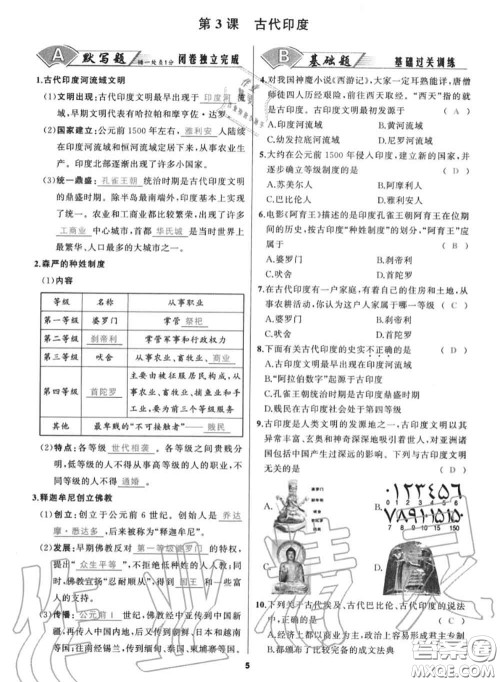 第 3 课 古代印度
A 默写题 错一处点1分 闭卷独立完成
1.古代印度河流域文明
(1)文明出现:古代印度文明最早出现于印度河流域,
早期文明代表有哈拉帕和摩亨佐·达罗。
(2)国家建立:公元前 1500 年左右, 雅利安 人陆续
在印度河流域和恒河流域定居下来,从事农业生
产。印度北部逐渐出现了许多小国家。
(3)统一鼎盛: 孔雀王朝 统治时期是古代印度文明
的鼎盛时期。除半岛最南端外,印度基本上实现
了统一。农业和工商业都比较繁荣,出现了许多
工商业 中心城市,首都 华氏城 是当时世界上
最繁华、人口最多的大城市之一。
2.森严的种姓制度
(1)内容
等级 名称 从事职业
第一等级 婆罗门 掌管 祭祀
第二等级 刹帝利 掌管军事和行政权力
第三等级 吠舍 从事农业、畜牧业、 商业
第四等级 首陀罗 主要由被征服居民构成,从
事农业、畜牧业、捕鱼业和手
工业,要为前三个等级服务
其他 最卑贱的“不可接触者”—— 贱民
(2)特点:各等级 世代相袭 。各等级之间贵贱分
明,低等级的人不得从事高等级的人的职业,不
同等级的人不得 通婚 。
3.释迦牟尼创立佛教
(1)创立:创立于公元前 6 世纪,创始人是 乔达
摩·悉达多 ,后来被称为“释迦牟尼”。
(2)发展:早期佛教反对 第一等级婆罗门 的特权,
提出“ 众生平等 ”,不拒绝低种姓的人入教,同
时,佛教宣扬“忍耐顺从”,得到 国王 和一些富
人的支持。
(3)传播: 公元前 1 世纪,佛教经中亚传到中国新
疆,再传到中国内地,以后又从中国传到朝鲜、日
本等地;往南经锡兰,传到缅甸、泰国、柬埔寨等国。
B 基础题 基础过关训练
4.对我国神魔小说《西游记》,大家一定耳熟能详,唐僧
师徒四人历经艰险,前往西天取经。“西天”指的就
是古印度。古印度文明最初发源于 ( A )
A.印度河流域 B.黄河流域
C.两河流域 D.尼罗河流域
5.大约在公元前 1500 年侵入印度,建立新的国家,并
逐步确立等级制度的是 ( D )
A.苏美尔人 B.阿摩利人
C.巴比伦人 D.雅利安人
6.电影《阿育王》描述的是印度孔雀王朝阿育王在位期
间的历史,按古印度“种姓制度”的划分,“阿育王”应
属于 ( B )
A.婆罗门 B.刹帝利
C.吠舍 D.首陀罗
7.在古代印度有一户家庭,有着自己的住房和土地,从
事农耕活动,你认为这户人家属于哪一个等级 ( C )
A.婆罗门 B.刹帝利
C.吠舍 D.首陀罗
8.下面有关古代印度的史实不正确的是 ( D )
A.古代印度文明最早出现在印度河流域
B.“阿拉伯数字”起源于古印度
C.孔雀王朝统治时期是古代印度鼎盛时期
D.贱民在古代印度社会处于第四等级
9.古印度是人类文明的发源地之一,古印度文明以其
异常丰富、玄奥和神奇深深地吸引着世人,对亚洲诸
国包括中国产生过深远的影响。下列与古印度文明
无关的是 ( D )
A B
C D
10.下列关于古代埃及、古代巴比伦、古代印度的说法
中,正确的是 ( C )
A.经济上都以商业为主,政治上容易形成君主专制
B.都颁布了比较完备的成文法典
5